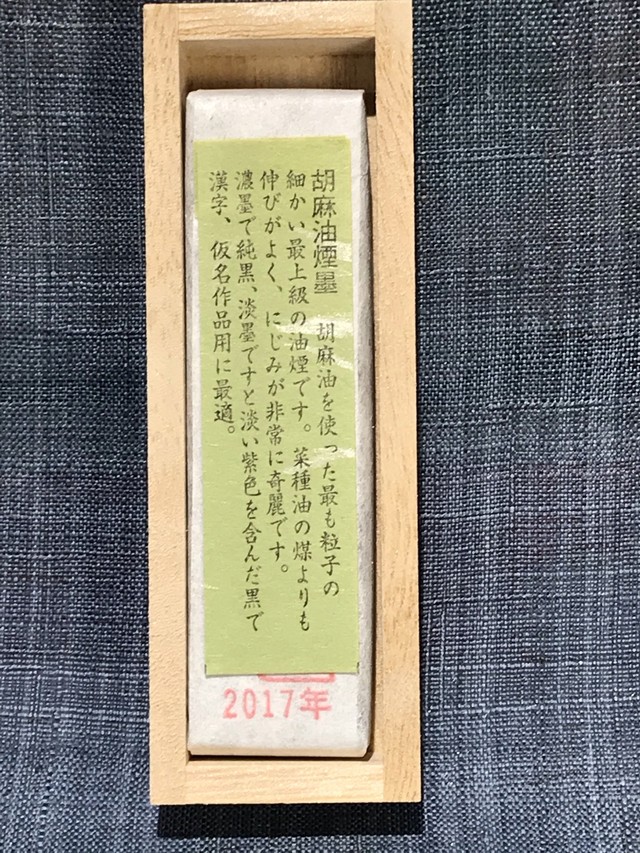 胡麻油煙墨 胡麻油を使った最も粒子の
細かい最上級の油煙です。菜種油の煤よりも
伸びがよく、にじみが非常に奇麗です。
濃墨で純黒、淡墨ですと淡い紫色を含んだ黒で
漢字、仮名作品用に最適。
2017年